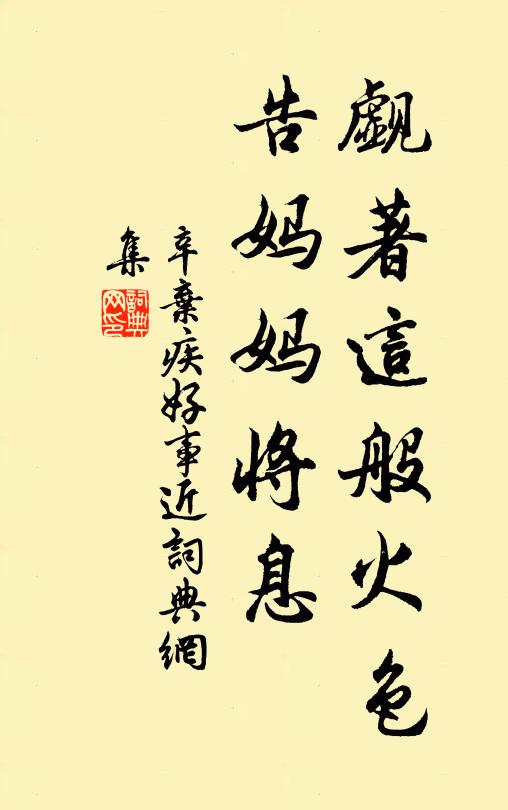 觑著這般火色
告妈妈将息
辛棄疾好事近詞典網
集
詞典网印